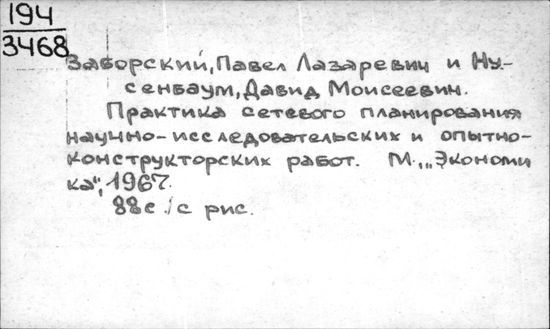 194
3468
Заборский, Павел Лазаревич и Ну-
сенбаум, Давид Моисеевич.
Практика сетевого планирования
научно-исследовательских и опытно-
конструкторских работ. М., „Экономи
ка", 1967.
88с. с рис.